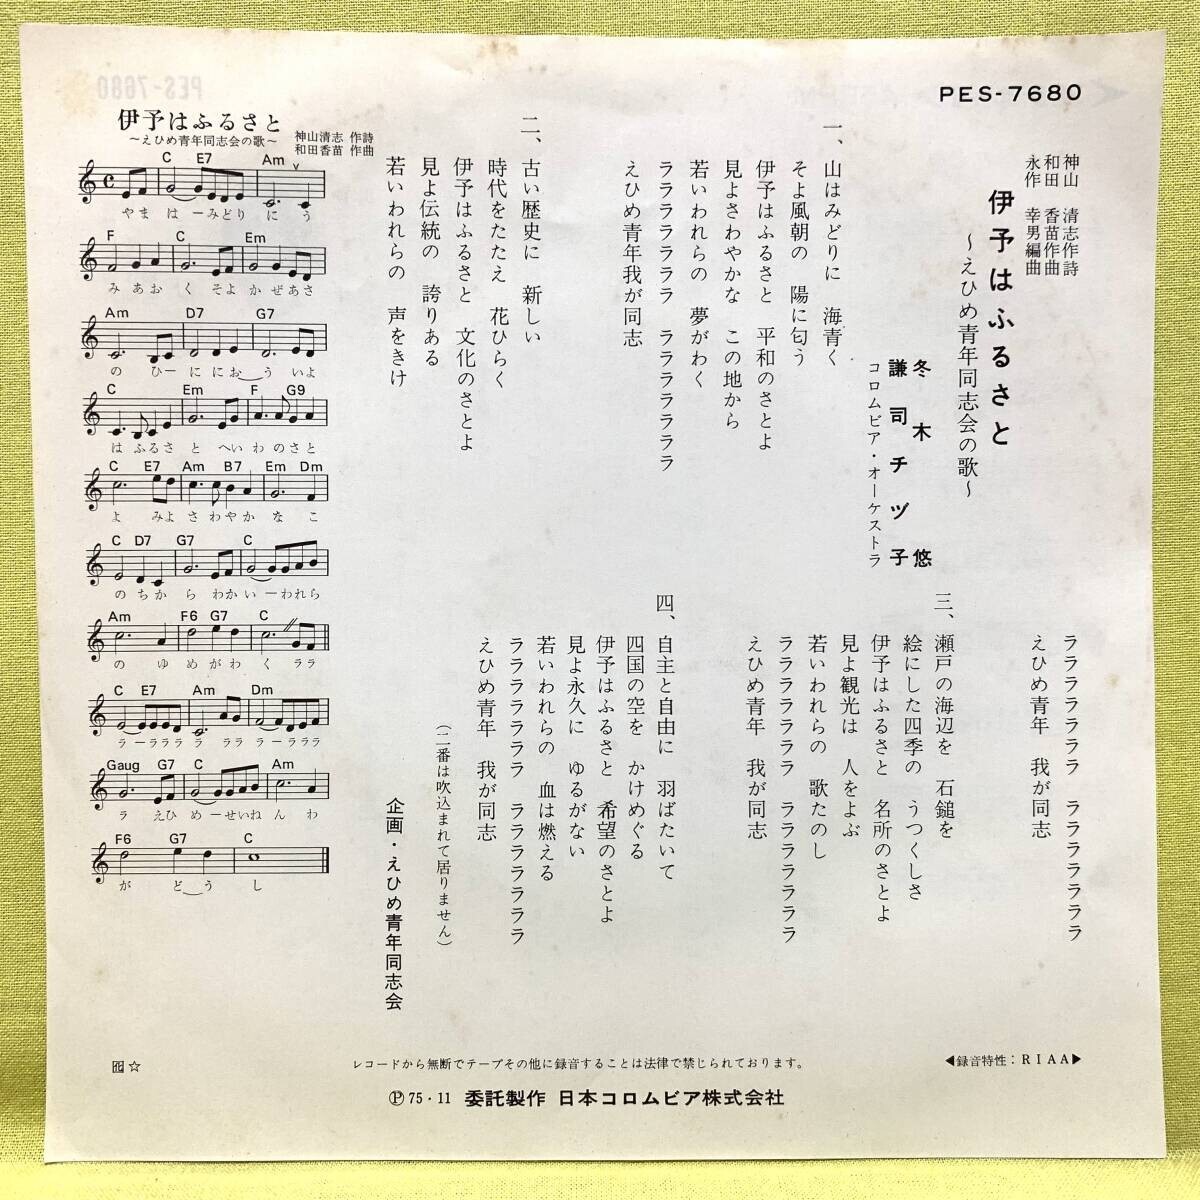 PES-7680
伊予はふるさと
～えひめ青年同志会の歌～
神山 清志作詩
和田 香苗作曲
永作 幸男編曲
冬木 悠
謙司チヅ子
コロムビア・オーケストラ
一、山はみどりに 海青く
そよ風朝の 陽に匂う
伊予はふるさと 平和のさとよ
見よさわやかな この地から
若いわれらの 夢がわく
ラララララララ ラララララララ
えひめ青年我が同志
二、古い歴史に 新しい
時代をたたえ 花ひらく
伊予はふるさと 文化のさとよ
見よ伝統の 誇りある
若いわれらの 声をきけ
ラララララララ ラララララララ
えひめ青年 我が同志
三、瀬戸の海辺を 石鎚を
絵にした四季の うつくしさ
伊予はふるさと 名所のさとよ
見よ観光は 人をよぶ
若いわれらの 歌たのし
ラララララララ ラララララララ
えひめ青年 我が同志
四、自主と自由に 羽ばたいて
四国の空を かけめぐる
伊予はふるさと 希望のさとよ
見よ永久に ゆるがない
若いわれらの 血は燃える
ラララララララ ラララララララ
えひめ青年 我が同志
（二番は吹込まれて居りません）
企画・えひめ青年同志会
伊予はふるさと
～えひめ青年同志会の歌～
神山清志 作詩
和田香苗 作曲
C E7 Am
やま は ーみどり に う
F C Em
み あ お く そよ か ぜ あ さ
Am D7 G7
の ひ ー に に お う い よ
C Em F G9
は ふるさ と へ い わ の さ と
C E7 Am B7 Em Dm
よ みよ さ わ や か な こ
C D7 G7 C
の ち か ら わ か い ー わ れ ら
Am F6 G7 C
の ゆ め が わ く ララ
C E7 Am Dm
ラ ー ラララ ラ ララ ラ ー ラララ
Gaug G7 C Am
ラ えひ め ー せ い ね ん わ
F6 G7 C
が ど う し
☆
レコードから無断でテープその他に録音することは法律で禁じられております。
◀録音特性：RIAA▶
Ⓟ75・11 委託製作 日本コロムビア株式会社